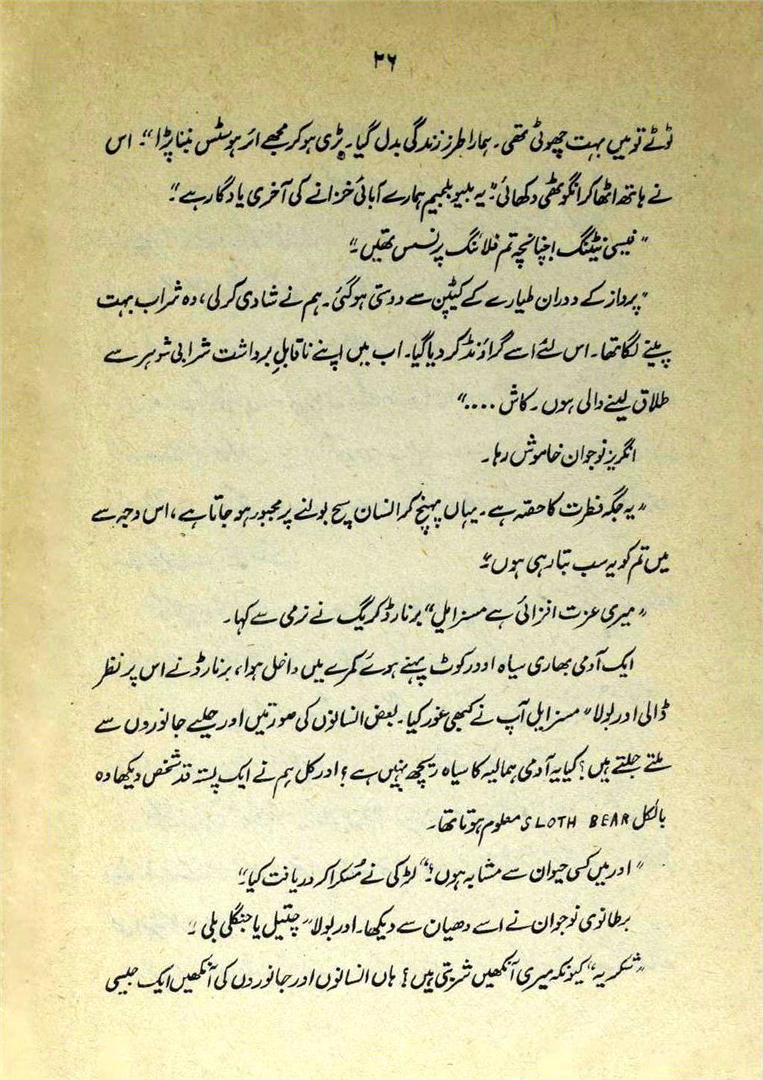 ۲۶
ٹوٹے تو میں بہت چھوٹی تھی۔ ہمارا طرز زندگی بدل گیا۔ بڑی ہو کر مجھے ائر ہوسٹس بننا پڑا“۔ اس
نے ہاتھ اٹھا کر انگوٹھی دکھائی: ”یہ بلیو بلجیم ہمارے آبائی خزانے کی آخری یادگار ہے“۔
”فیسی نیٹنگ! چنانچہ تم فلائنگ پرنسس تھیں۔“
”پرواز کے دوران طیارے کے کیپٹن سے دوستی ہو گئی۔ ہم نے شادی کر لی، وہ شراب بہت
پینے لگا تھا۔ اس لئے اسے گراؤنڈ کر دیا گیا۔ اب میں اپنے ناقابل برداشت شرابی شوہر سے
طلاق لینے والی ہوں۔ کاش ....“
انگریز نوجوان خاموش رہا۔
”یہ جگہ فطرت کا حصّہ ہے۔ یہاں پہنچ کر انسان سچ بولنے پر مجبور ہو جاتا ہے، اس وجہ سے
میں تم کو یہ سب بتا رہی ہوں“۔
”میری عزت افزائی ہے مسز ایل“ برنارڈ کریگ نے نرمی سے کہا۔
ایک آدمی بھاری سیاہ اوورکوٹ پہنے ہوئے کمرے میں داخل ہوا، برنارڈ نے اس پر نظر
ڈالی اور بولا ”مسز ایل آپ نے کبھی غور کیا۔ بعض انسانوں کی صورتیں اور حلیے جانوروں سے
ملتے جلتے ہیں؟ کیا یہ آدمی ہمالیہ کا سیاہ ریچھ نہیں ہے؟ اور کل ہم نے ایک پستہ قد شخص دیکھا وہ
بالکل SLOTH BEAR معلوم ہوتا تھا۔
”اور میں کسی حیوان سے مشابہ ہوں؟“ لڑکی نے مسکرا کر دریافت کیا“۔
برطانوی نوجوان نے اسے دھیان سے دیکھا۔ اور بولا ”چیتل یا جنگلی بلی“۔
”شکریہ“ کیونکہ میری آنکھیں شربتی ہیں؟ ہاں انسانوں اور جانوروں کی آنکھیں ایک جیسی